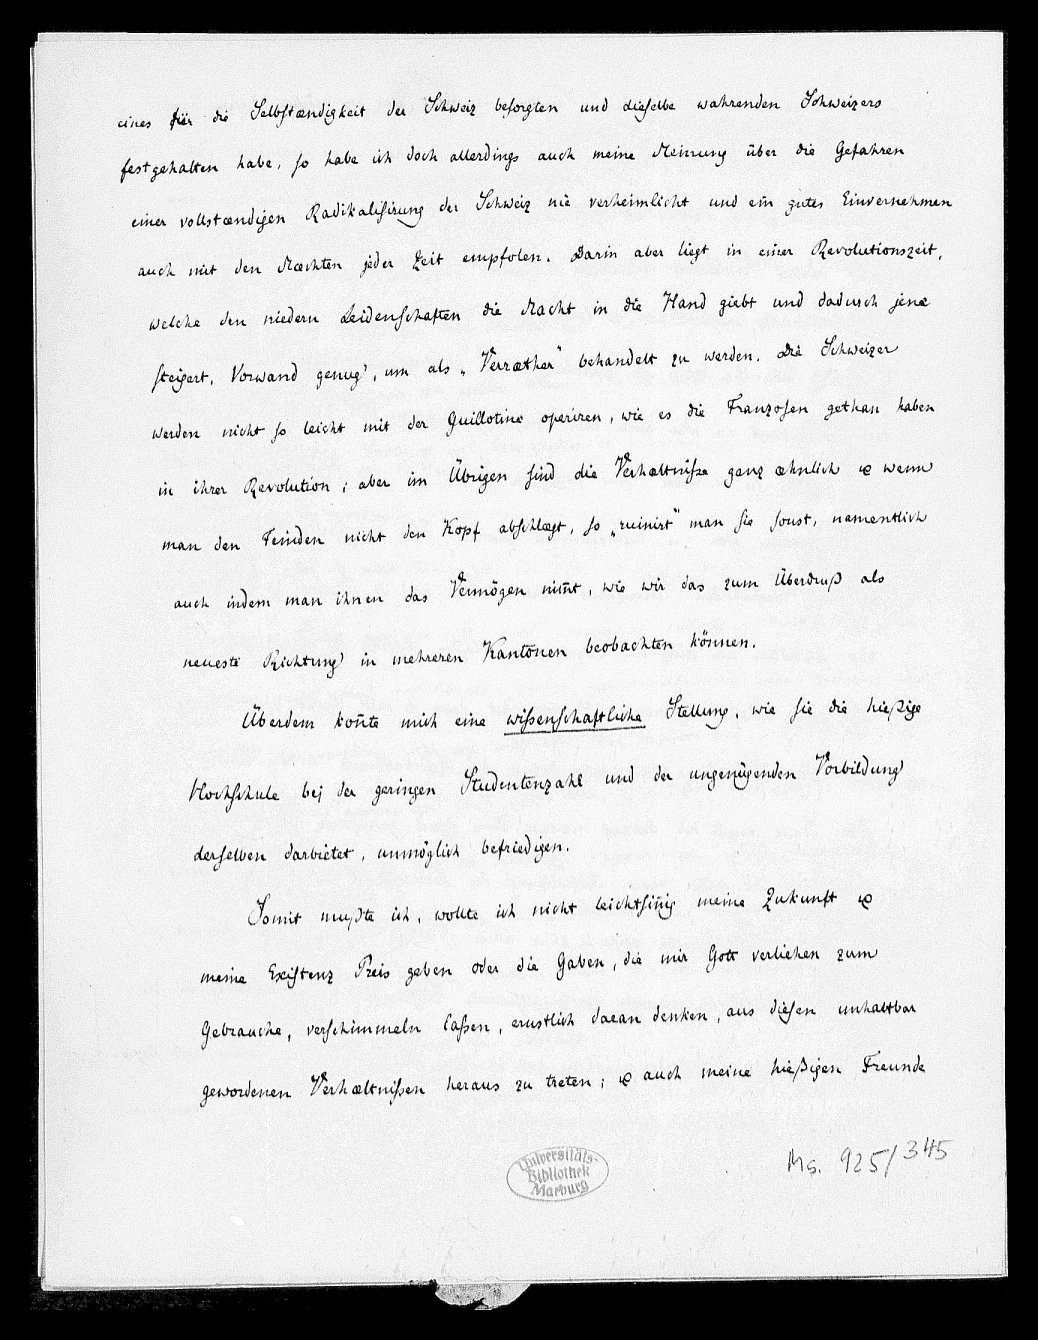 eines für die Selbſtændigkeit der Schweiz beſorgten und dieſelbe wahrenden Schweizers
festgehalten habe, ſo habe ich doch allerdings auch meine Meinung über die Gefahren
einer vollstændigen Radikaliſirung der Schweiz nie verheimlicht und ein gutes Einvernehmen
auch mit den Mæchten jeder Zeit empfolen. Darin aber liegt in einer Revolutionszeit,
welche den niedern Leidenſchaften die Macht in die Hand giebt und dadurch jene
ſteigert, Vorwand genug, um als „Verræther" behandelt zu werden. Die Schweizer
werden nicht ſo leicht mit der Guillotine operiren, wie es die Franzoſen gethan haben
in ihrer Revolution; aber im Übrigen ſind die Verhæltniſſe ganz æhnlich & wenn
man den Feinden nicht den Kopf abſchlægt, ſo „ruinirt" man ſie ſonst, namentlich
auch indem man ihnen das Vermögen nim̄t, wie wir das zum Überdruß als
neueste Richtung in mehreren Kantonen beobachten können.
Überdem kon̄te mich eine wiſſenſchaftliche Stellung, wie ſie die hieſzige
Hochſchule bej der geringen Studentenzahl und der ungenügenden Vorbildung
derſelben darbietet, unmöglich befriedigen.
Somit mußte ich, wollte ich nicht leichtſin̄ig meine Zukunft &
meine Exiſtenz Preis geben oder die Gaben, die mir Gott verliehen zum
Gebrauche, verſchimmeln laſſen, ernstlich daran denken, aus dieſen unhaltbar
gewordenen Verhæltniſſen heraus zu treten; & auch meine hieſzigen Freunde
Universitäts-
Bibliothek
Marburg
Ms. 925/345